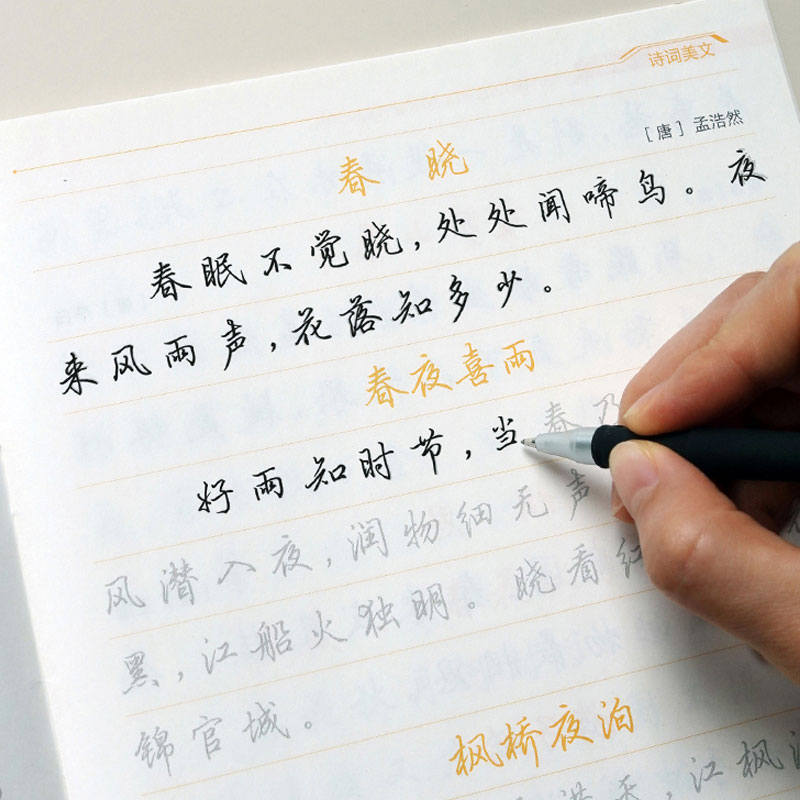 诗词美文
[唐]孟浩然
春晓
春眠不觉晓,处处闻啼鸟。夜
来风雨声,花落知多少。
春夜喜雨
好雨知时节,当春乃
风潜入夜,润物细无声
黑,江船火独明。晓看红
锦官城。
枫桥夜泊
江枫渔